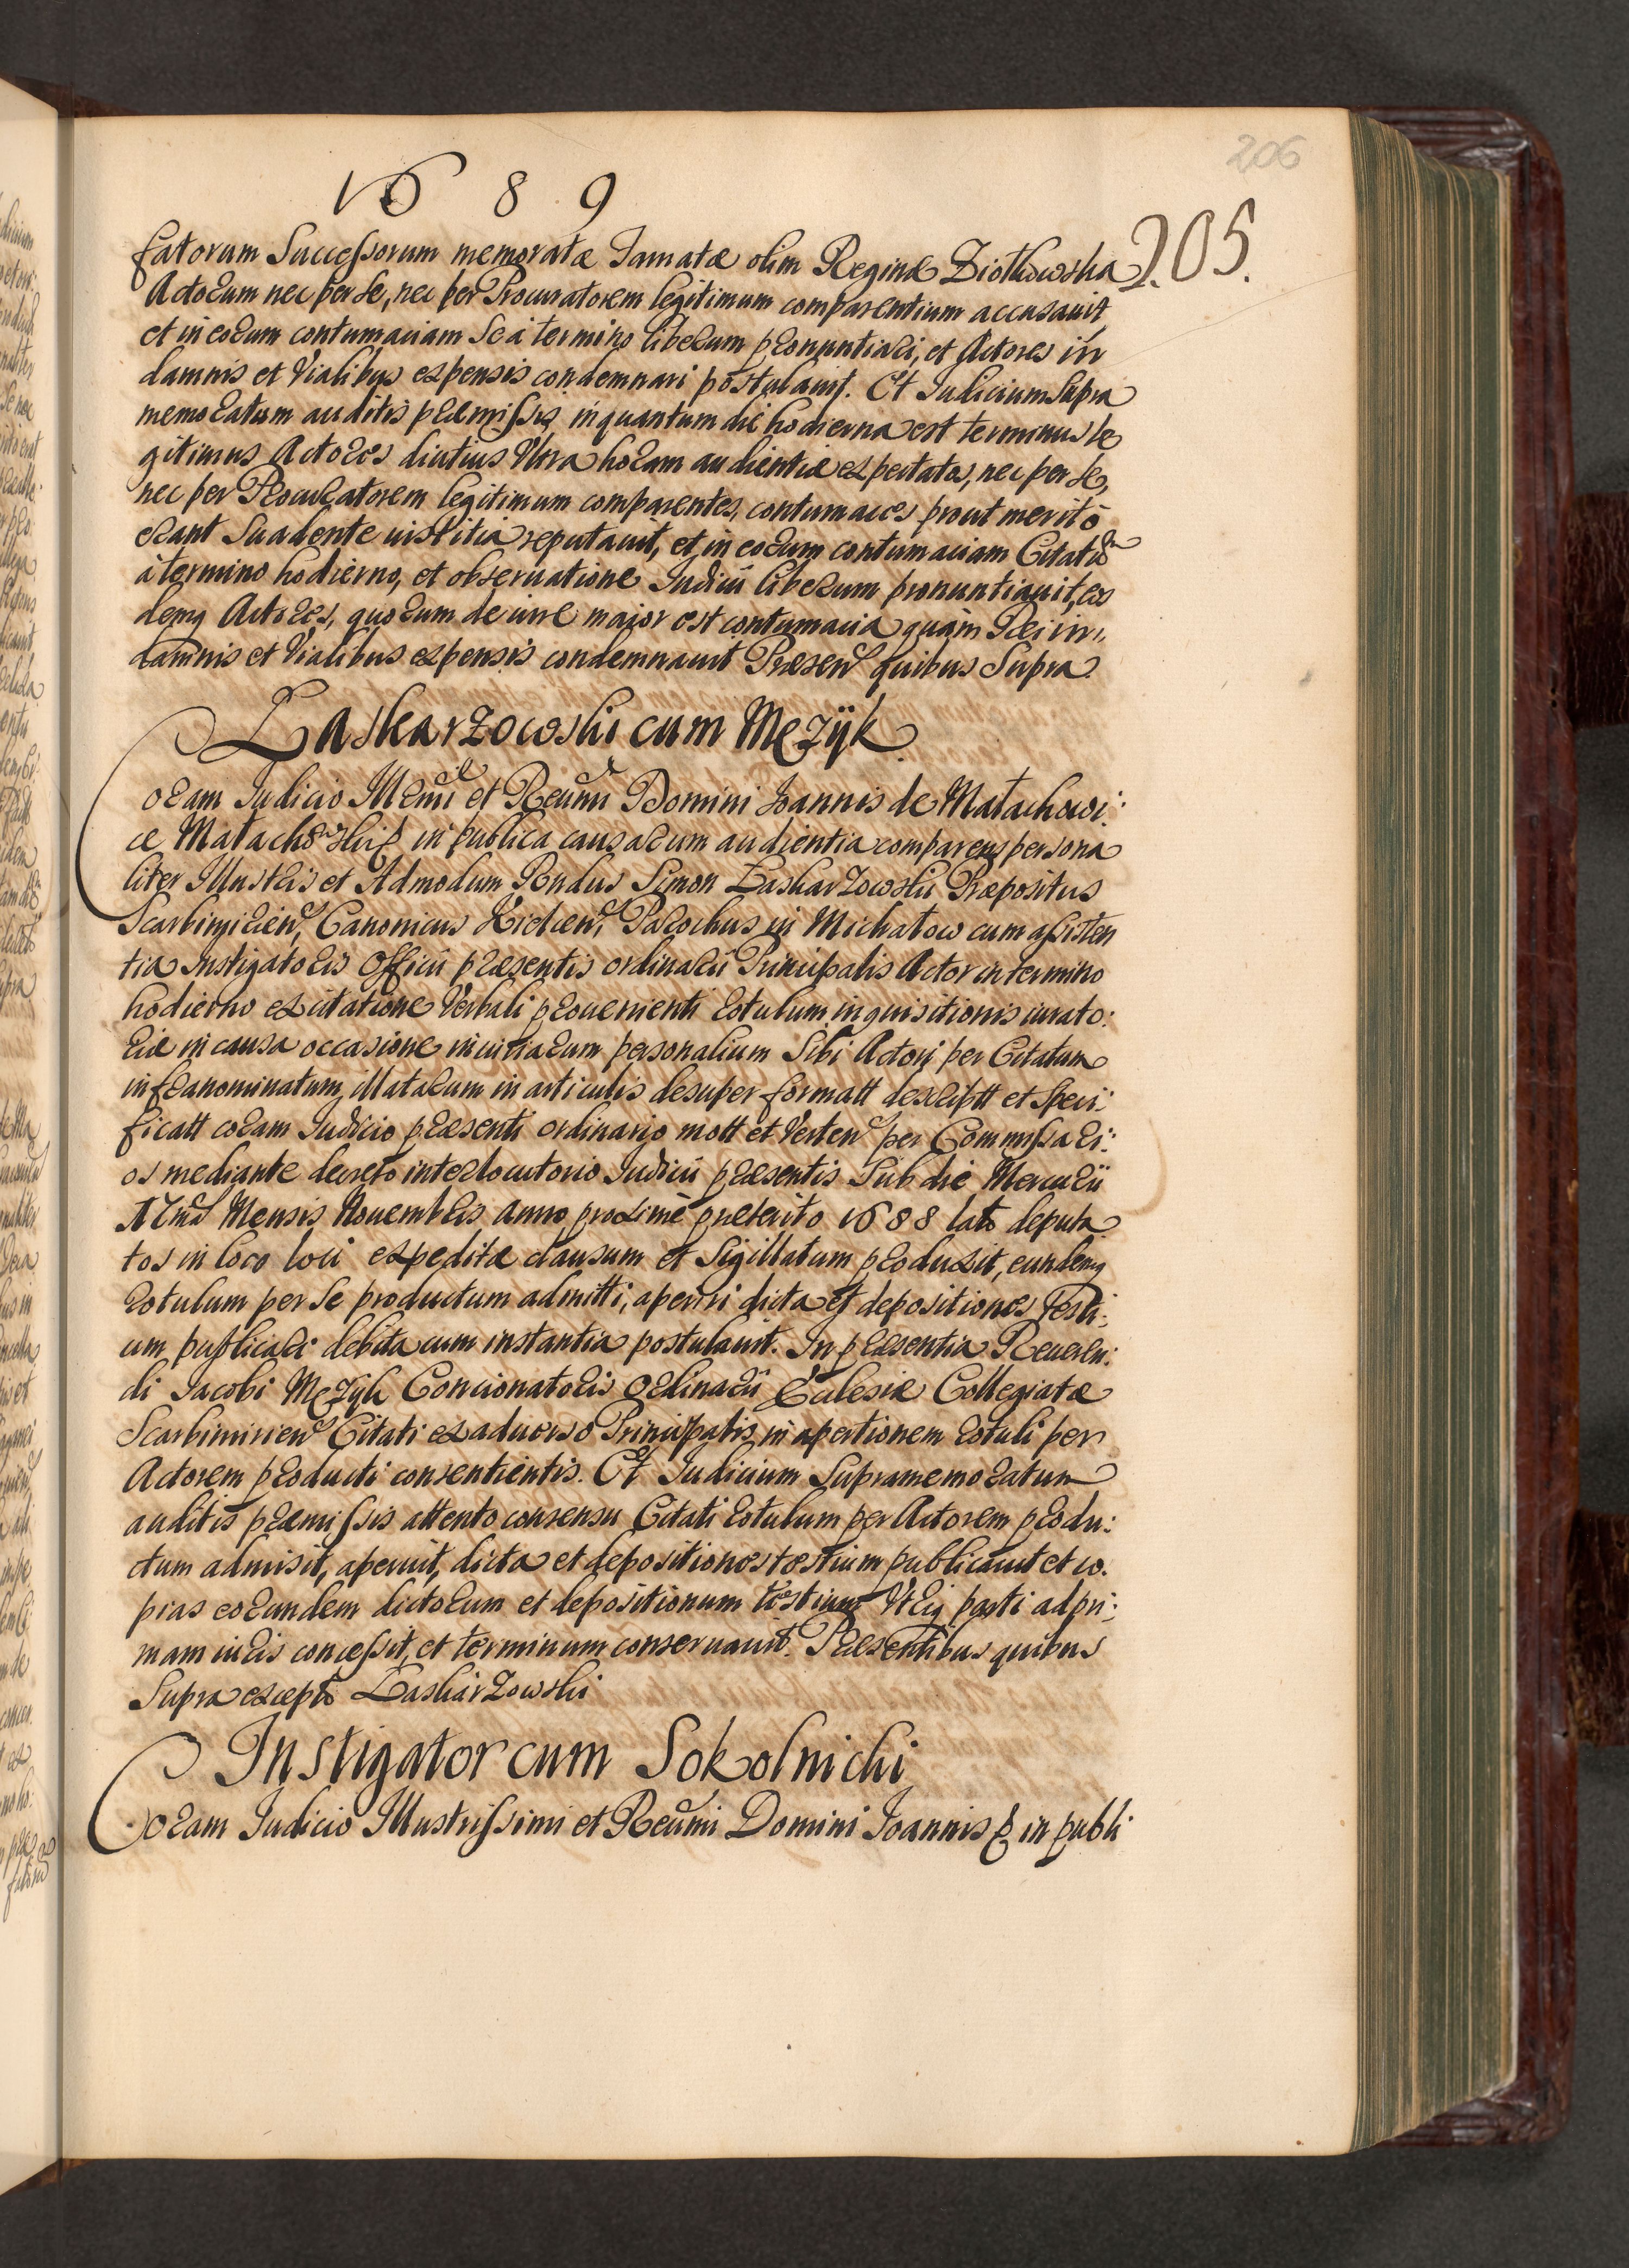 206
1689
205.
fatorum Successorum memoratæ Famatæ olim Reginæ Ziołkowska
Actorum nec per se, nec per Procuratorem legitimum comparentium accusavit
et in eorum contumaciam se à termino liberum pronuntiari, et Actores in
damnis et Vialibus expensis condemnari postulavit. Et Iudicium supra
memoratum auditis præmissis inquantum diè hodierna est terminus le
gitimus Actores diutius Ultra horam audientiæ expectatos, nec per se,
nec per Procuratorem legitimum comparentes, contumaces prout meritò
erant Suadente iustitia reputavit, et in eorum contumaciam Citatũ
à termino hodierno, et observatione Iudicii liberum pronuntiavit, eos
demq Actores, quorum de iure maior est contumacia quàm Rei in
damnis et Vialibus expensis condemnavit Præsen quibus Supra
Łaskarzowski cum Męzÿk
Coram Iudicio Illmi et Reumi Domini Joannis de Małachowi:
ce Małachowski in publica causarum audientia comparens persona
liter Illustris et Admodum Rndus Simon Łaskarzowski Præpositus
Scarbimirien, Canonicus Kielcen, Parochus in Michałow cum assisten
tia Instigatoris Officii præsentis ordinarii Principalis Actor in termino
hodierno ex citatione Verbali provenienti rotulum inquisitionis iurato:
riæ in causa occasione iniuriarum personalium Sibi Actori per Citatum
infranominatum, illatarum in articulis desuper formatt descriptt et speci:
ficatt coram Iudicio præsenti ordinario mott et Verten per Commissari:
os mediante decreto interlocutorio Iudicii præsentis Sub diè Mercurii
17ma Mensis Novembris anno proximè præterito 1688 lato deputa
tos in loco loci expeditæ clausum et Sigillatum produxit, eundemq
rotulum per se productum admitti, aperiri dicta et depositiones Testi:
um publicari debita cum instantia postulavit. In præsentia Reveren:
di Iacobi Męzÿk Concionatoris Ordinarii Ecclesiæ Collegiatæ
Scarbimirien Citati ex adverso Principalis in apertionem rotuli per
Actorem producti consentientis. Et Iudicium Supramemoratum
auditis præmissis attento consensu Citati rotulum per Actorem produ:
ctum admisit, aperuit, dicta et depositiones testium publicavit et co.
pias eorundem dictorum et depositionum testium Utriq parti ad pri:
mam iuris concessit, et terminum conservavit. Præsentibus quibus
Supra excepto Łaskarzowski
Instigator cum Sokolnicki
Coram Iudicio Illustrissimi et Reumi Domini Joannis in publi